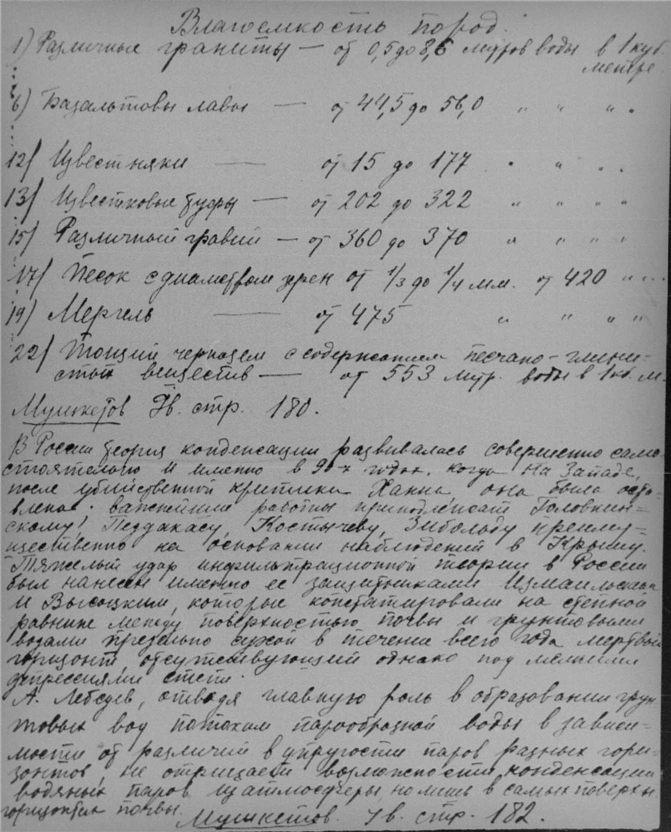 Влагоемкость пород.
1) Различные граниты — от 0,5 до 8,6 литров воды в 1 куб
метре
6) Базальтовы лавы — от 44,5 до 56,0 " " " "
12) Известняки — от 15 до 177 " " " "
13) Известковые туфы — от 202 до 322 " " " "
15) Различный гравий — от 360 до 370 " " " "
17) Песок с диаметром зерен от 1/3 до 1/4 мм. от 420 " " "
19) Мергель — от 475 " " " "
22) Тощий чернозем с содержанием песчано-глини-
стых веществ — от 553 литр. воды в 1 кб. м.
Мушкетов Iв. стр. 180.
В России теория конденсации развивалась совершенно само-
стоятельно и именно в 90-х годах, когда на Западе,
после убийственной критики Ханна, она была оста-
влена. Важнейшие работы принадлежат Головкин-
скому, Педдакасу, Костычеву, Зибольду преиму-
щественно на основании наблюдений в Крыму.
Тяжелый удар инфильтрационной теории в России
был нанесен именно ее защитниками Измаильским
и Высоцким, которые констатировали на степной
равнине между поверхностью почвы и грунтовыми
водами предельно сухой в течении всего года мертвый
горизонт, отсутствующий однако под мелкими
депрессиями степи.
А. Лебедев, отводя главную роль в образовании грун
товых вод потокам парообразной воды в зависи-
мости от различий в упругости паров разных гори-
зонтов, не отрицает возможности конденсации
водяных паров из атмосферы но лишь в самых поверхн
горизонтах почвы.
Мушкетов. Iв. стр. 182.